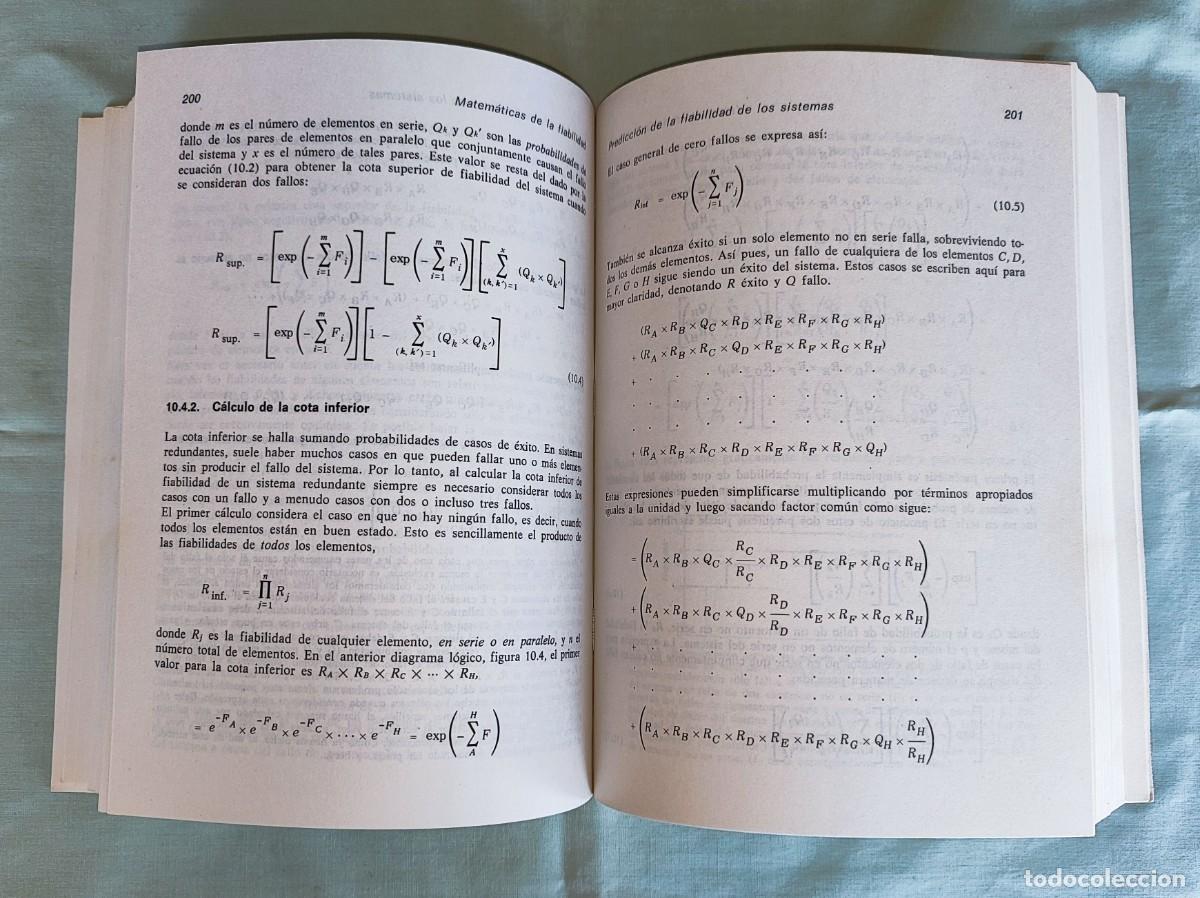 200
Matemáticas de la fiabilidad
donde m es el número de elementos en serie, Qk y Qk' son las probabilidades de
fallo de los pares de elementos en paralelo que conjuntamente causan el fallo
del sistema y x es el número de tales pares. Este valor se resta del dado por la
ecuación (10.2) para obtener la cota superior de fiabilidad del sistema cuando
se consideran dos fallos:
R sup. = [exp(−∑_{i=1}^{m} F_i)] − [exp(−∑_{i=1}^{m} F_i)][∑_{(k, k')=1}^{x} (Q_k × Q_k')]
R sup. = [exp(−∑_{i=1}^{m} F_i)][1 − ∑_{(k, k')=1}^{x} (Q_k × Q_k')]
(10.4)
10.4.2. Cálculo de la cota inferior
La cota inferior se halla sumando probabilidades de casos de éxito. En sistemas
redundantes, suele haber muchos casos en que pueden fallar uno o más elemen-
tos sin producir el fallo del sistema. Por lo tanto, al calcular la cota inferior de
fiabilidad de un sistema redundante siempre es necesario considerar todos los
casos con un fallo y a menudo casos con dos o incluso tres fallos.
El primer cálculo considera el caso en que no hay ningún fallo, es decir, cuando
todos los elementos están en buen estado. Esto es sencillamente el producto de
las fiabilidades de todos los elementos,
R inf. = ∏_{j=1}^{n} R_j
donde Rj es la fiabilidad de cualquier elemento, en serie o en paralelo, y n el
número total de elementos. En el anterior diagrama lógico, figura 10.4, el primer
valor para la cota inferior es R_A × R_B × R_C × ··· × R_H,
= e^{-F_A} × e^{-F_B} × e^{-F_C} × ... × e^{-F_H} = exp(−∑_{A}^{H} F)
Predicción de la fiabilidad de los sistemas
201
El caso general de cero fallos se expresa así:
R_inf = exp(−∑_{j=1}^{n} F_j)
(10.5)
También se alcanza éxito si un solo elemento no en serie falla, sobreviviendo to-
dos los demás elementos. Así pues, un fallo de cualquiera de los elementos C, D,
E, F, G o H sigue siendo un éxito del sistema. Estos casos se escriben aquí para
mayor claridad, denotando R éxito y Q fallo.
(R_A × R_B × Q_C × R_D × R_E × R_F × R_G × R_H)
+ (R_A × R_B × R_C × Q_D × R_E × R_F × R_G × R_H)
+ . . . . . . . .
. . . . . . . .
. . . . . . . .
+ (R_A × R_B × R_C × R_D × R_E × R_F × R_G × Q_H)
Estas expresiones pueden simplificarse multiplicando por términos apropiados
iguales a la unidad y luego sacando factor común como sigue:
= (R_A × R_B × Q_C × R_C/R_C × R_D × R_E × R_F × R_G × R_H)
+ (R_A × R_B × R_C × Q_D × R_D/R_D × R_E × R_F × R_G × R_H)
. . . . . . . .
. . . . . . . .
. . . . . . . .
+ (R_A × R_B × R_C × R_D × R_E × R_F × R_G × Q_H × R_H/R_H)
todocoleccion